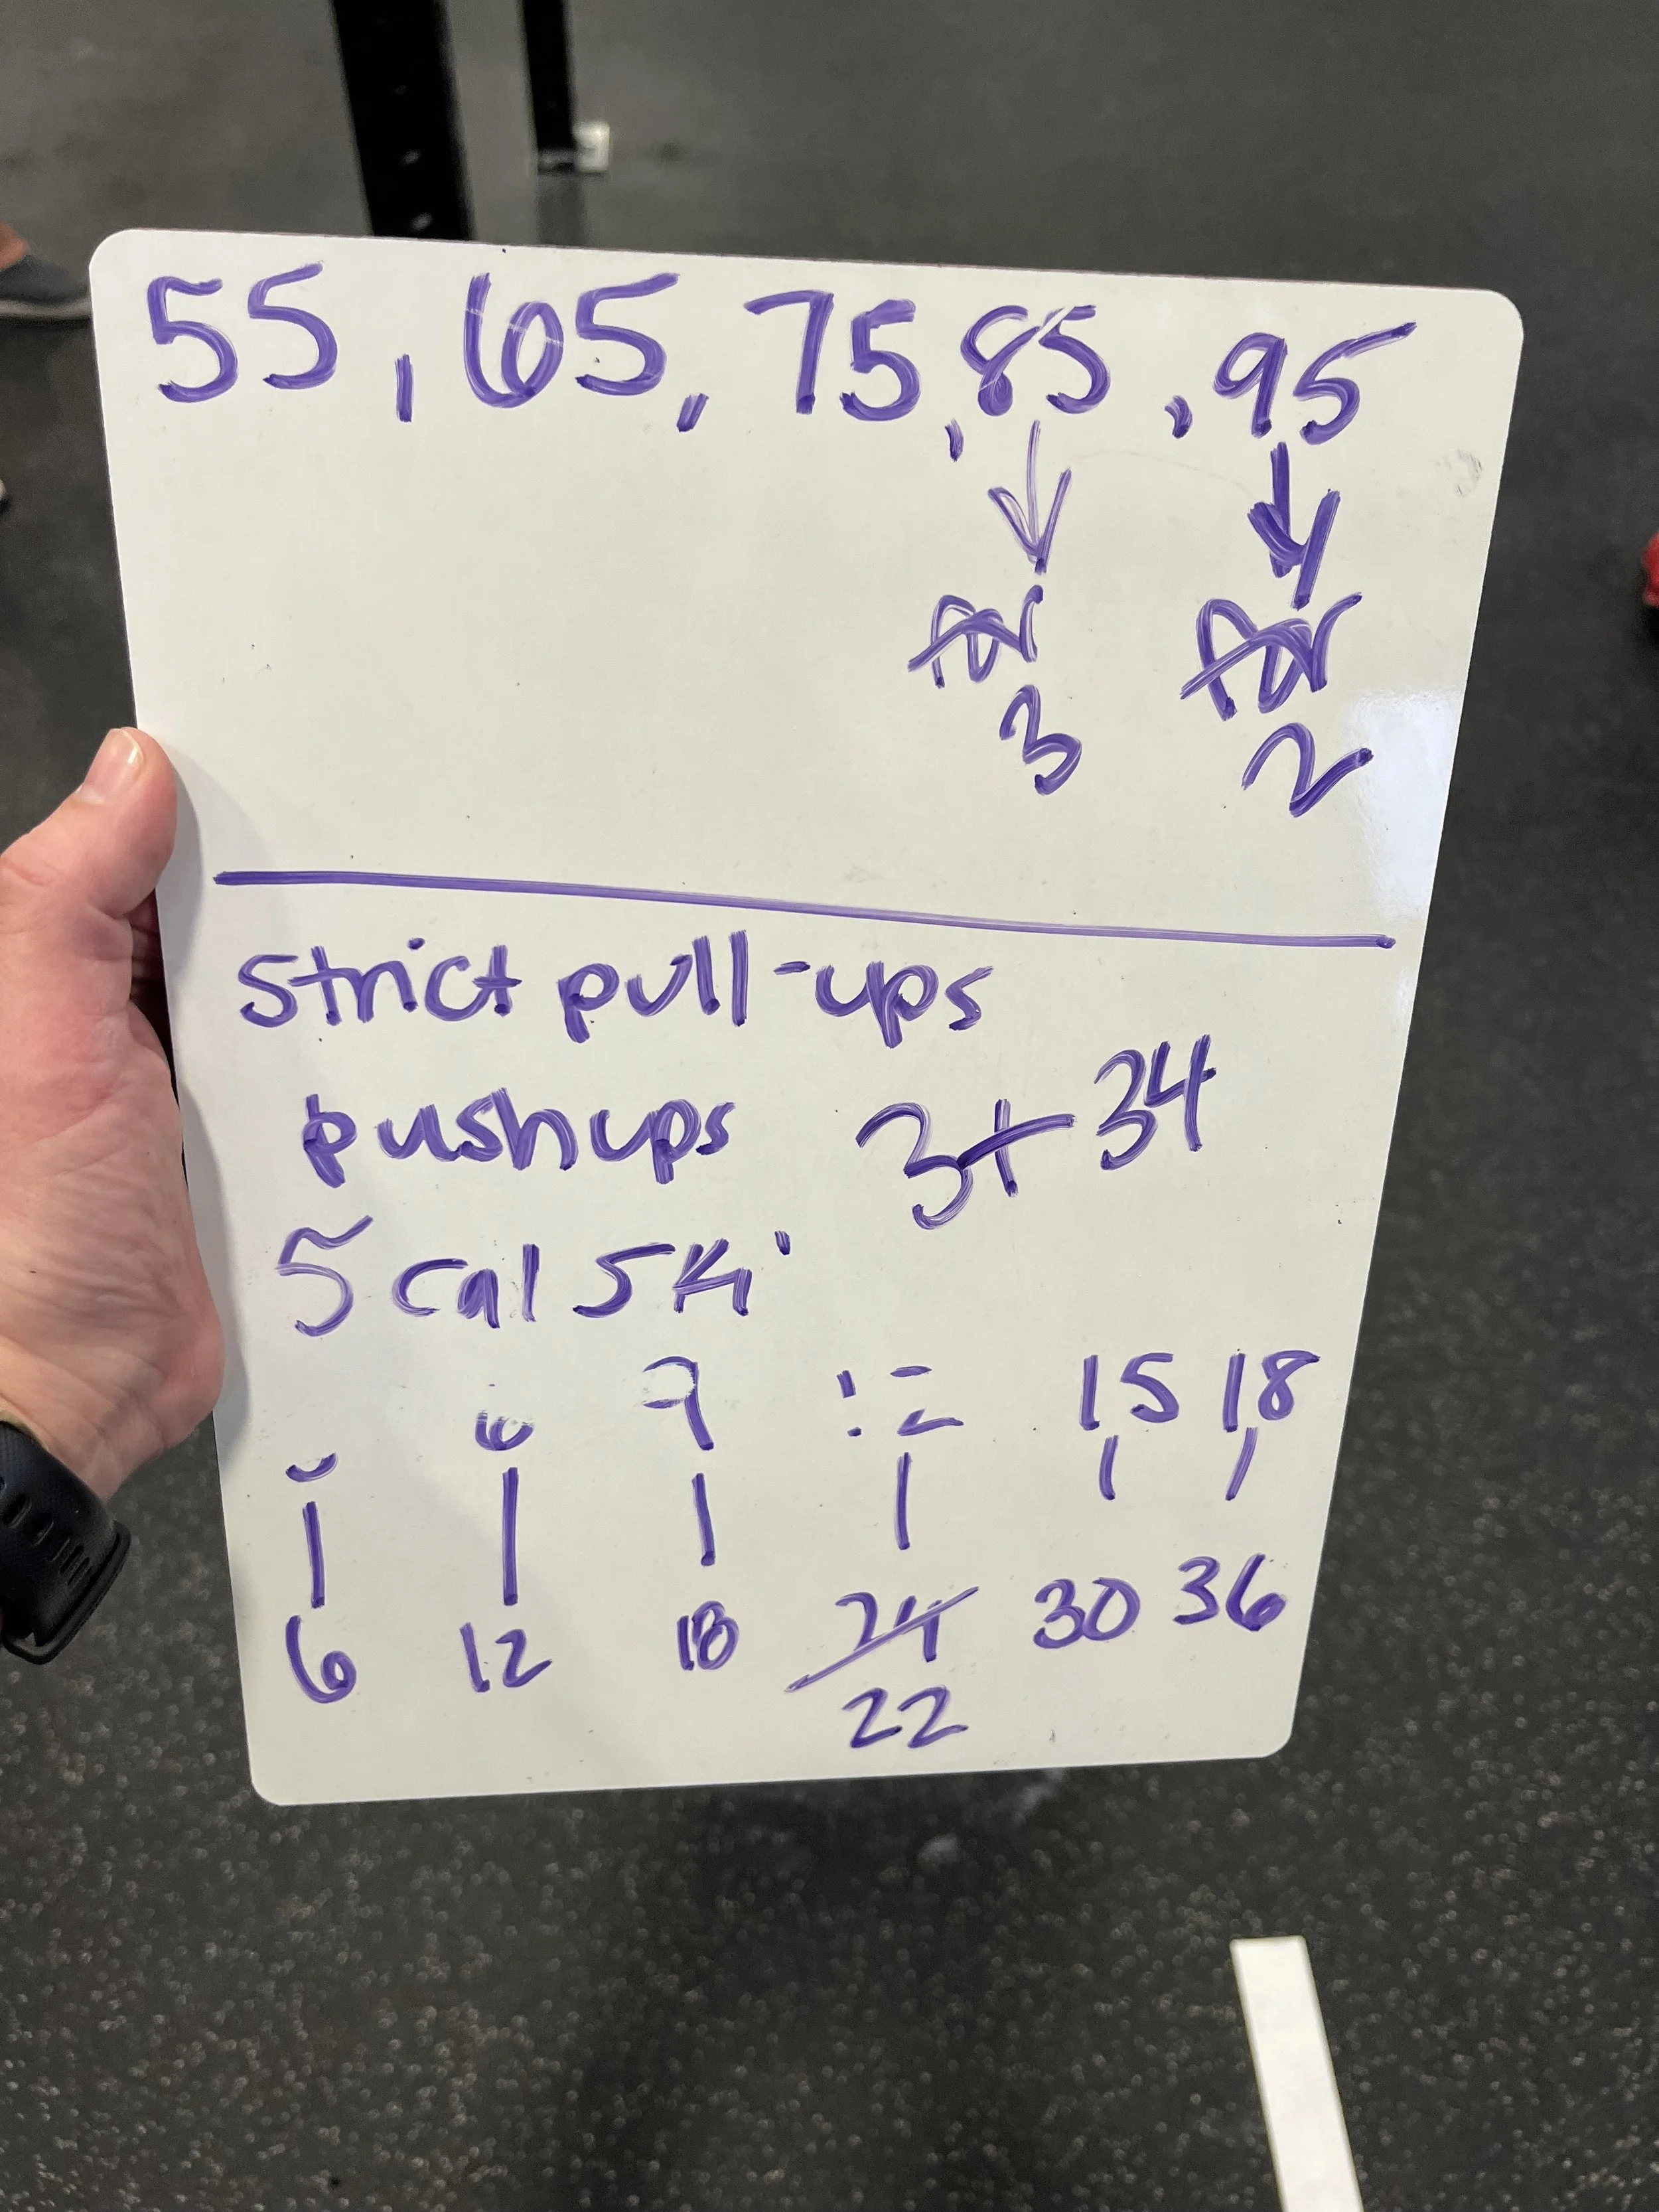 55, 65, 75, 85, 95
for for
3 2
strict pull-ups
pushups 3+34
5 cal ski
9 15 18
6 12 18 24 30 36
22